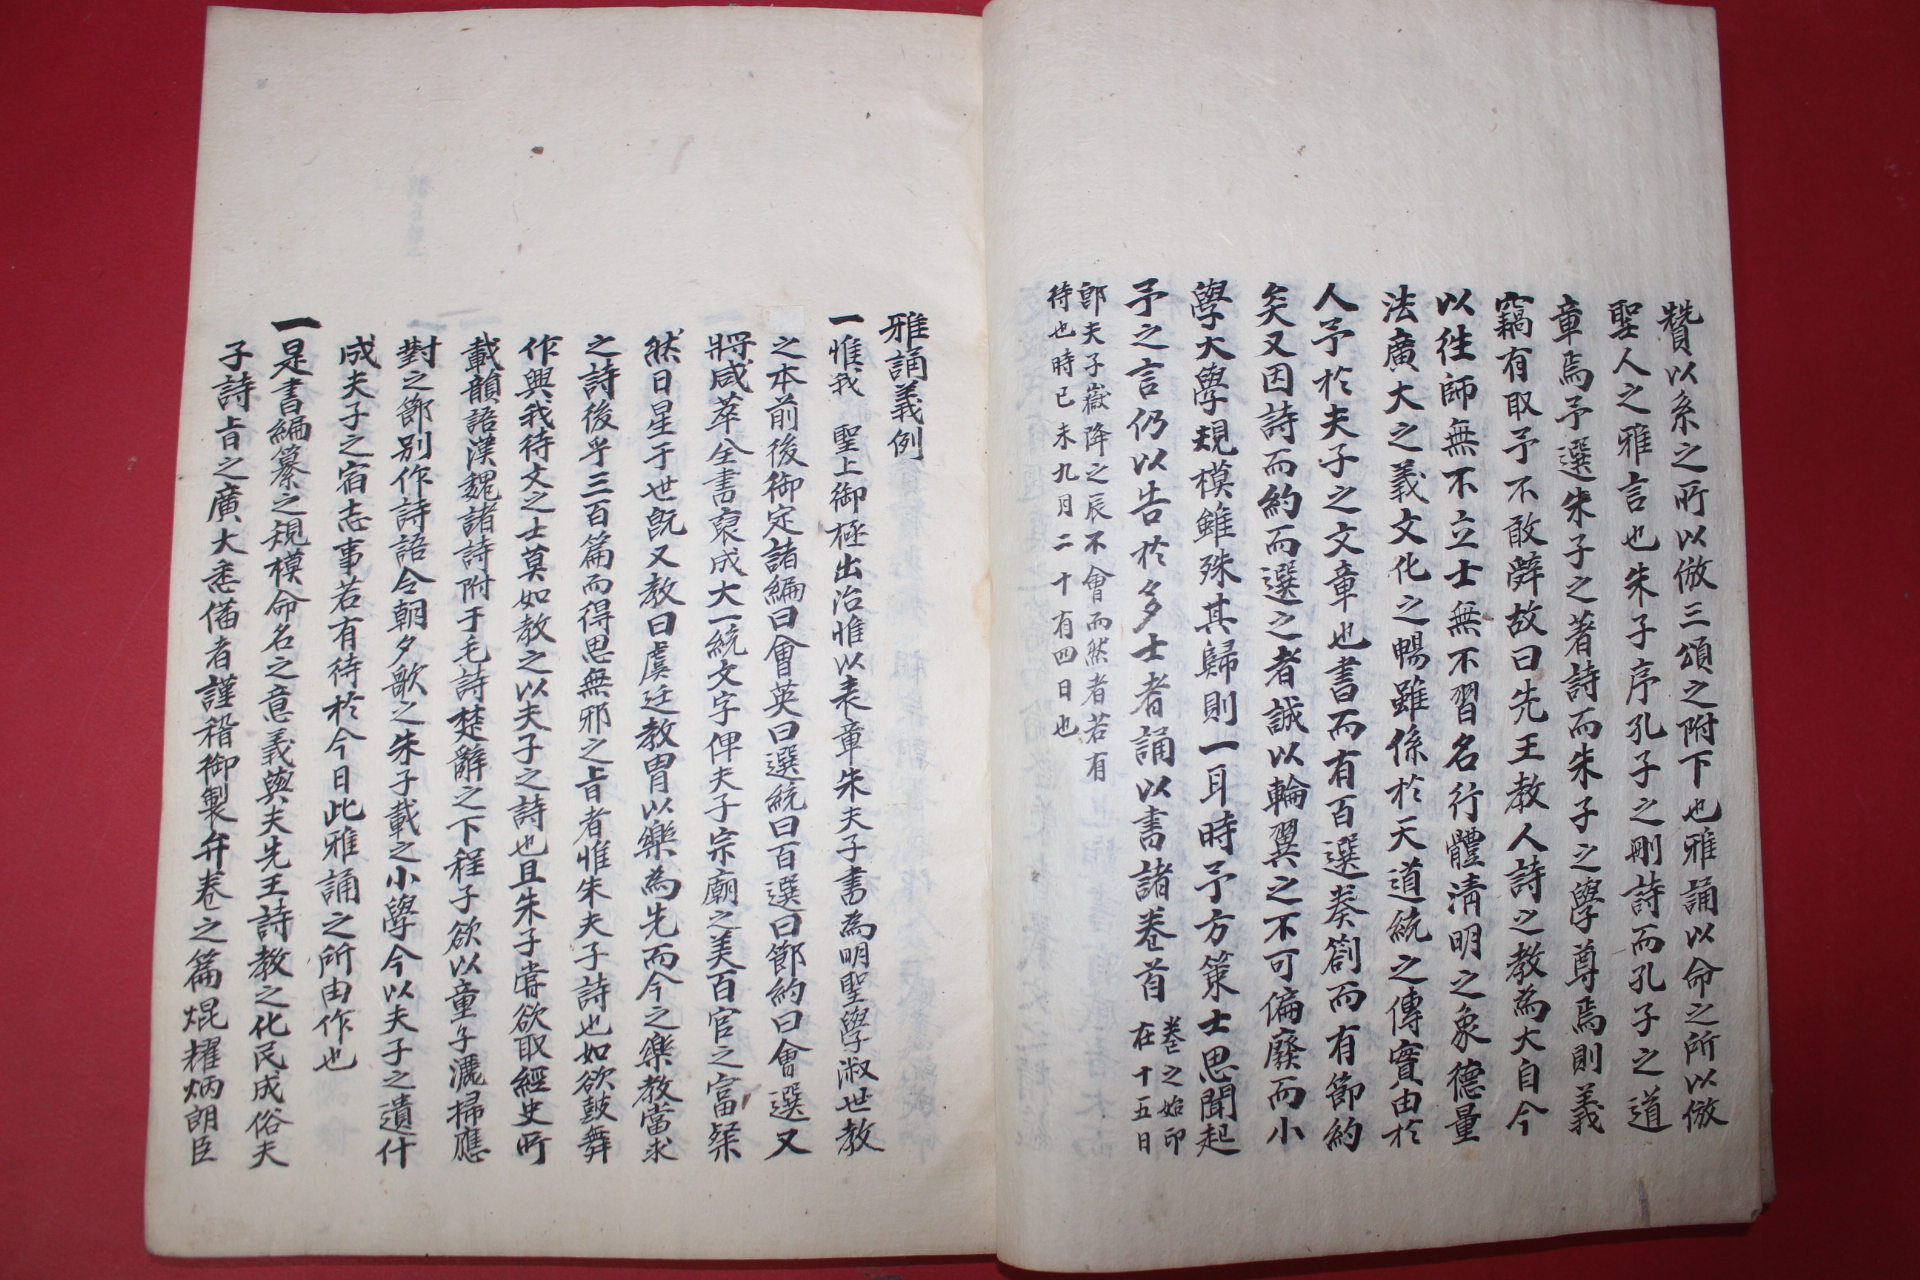 贊以系之所以倣三頌之附下也雅誦以命之所以倣
聖人之雅言也朱子序孔子之刪詩而孔子之道
章焉予選朱子之著詩而朱子之學尊焉則義
竊有取予不敢辭故曰先王教人詩之教為大自今
以徃師無不立士無不習名行體淸明之象德量
法廣大之義文化之暢雖係於天道統之傳實由於
人予於夫子之文章也書而有百選奏箚而有節約
矣又因詩而約而選之者誠以輪翼之不可偏廢而小
學大學規模雖殊其歸則一耳時予方策士思聞起
予之言仍以告於多士者誦以書諸卷首 卷之始印
在十五日
郎夫子嶽降之辰不會而然者若有
待也時己未九月二十有四日也
雅誦義例
一惟我 聖上御極出治惟以表章朱夫子書為明聖學淑世教
之本前後御定諸編曰會英曰選統曰百選曰節約曰會選又
將咸萃全書裒成大一統文字俾夫子宗廟之美百官之富粲
然日星于世旣又教曰虞廷教冑以樂為先而今之樂教當求
之詩後乎三百篇而得思無邪之旨者惟朱夫子詩也如欲鼓舞
作興我待文之士莫如教之以夫子之詩也且朱子嘗欲取經史所
載韻語漢魏諸詩附于毛詩楚辭之下程子欲以童子灑掃應
對之節別作詩語令朝夕歌之朱子載之小學今以夫子之遺什
成夫子之宿志事若有待於今日此雅誦之所由作也
一是書編纂之規模命名之意義與夫先王詩教之化民成俗夫
子詩旨之廣大悉備者謹稽御製弁卷之篇焜耀炳朗臣